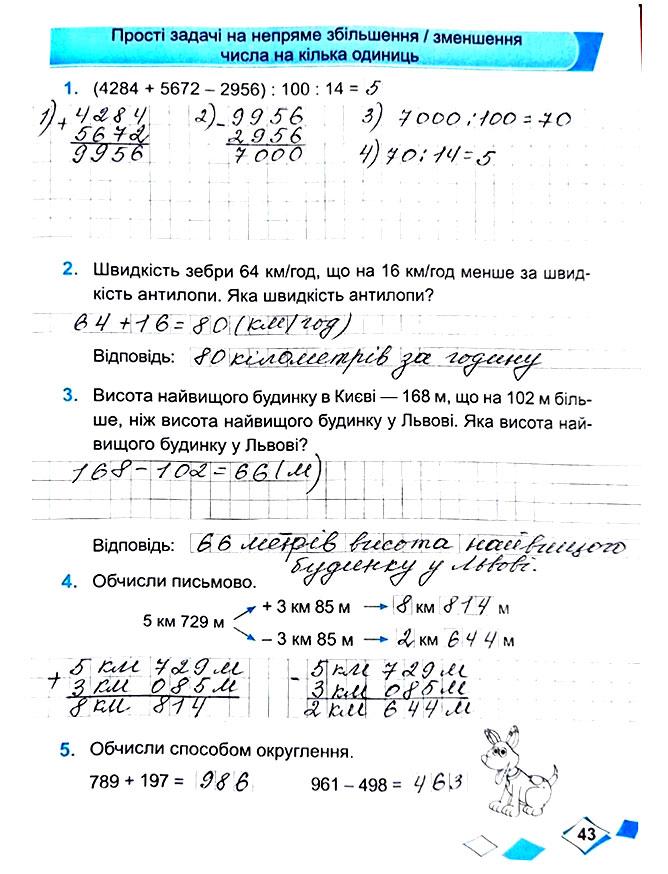 Прості задачі на непряме збільшення / зменшення
числа на кілька одиниць
1. (4284 + 5672 – 2956) : 100 : 14 = 5
1) + 4284 2) - 9956 3) 7000 : 100 = 70
5672 2956 4) 70 : 14 = 5
9956 7000
2. Швидкість зебри 64 км/год, що на 16 км/год менше за швид-
кість антилопи. Яка швидкість антилопи?
64 + 16 = 80 (км/год)
Відповідь: 80 кілометрів за годину
3. Висота найвищого будинку в Києві — 168 м, що на 102 м біль-
ше, ніж висота найвищого будинку у Львові. Яка висота най-
вищого будинку у Львові?
168 - 102 = 66 (м)
Відповідь: 66 метрів висота найвищого
будинку у Львові.
4. Обчисли письмово.
+ 3 км 85 м → 8 км 814 м
5 км 729 м
– 3 км 85 м → 2 км 644 м
+ 5 км 729 м - 5 км 729 м
3 км 085 м 3 км 085 м
8 км 814 2 км 644 м
5. Обчисли способом округлення.
789 + 197 = 986 961 – 498 = 463
43